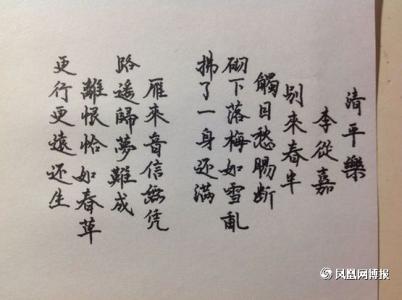 清平樂
李從嘉
别来春半
觸目愁腸断
砌下落梅如雪亂
拂了一身还满
雁来音信無凭
路遥歸夢難成
離恨恰如春草
更行更遠还生
凤凰网博报